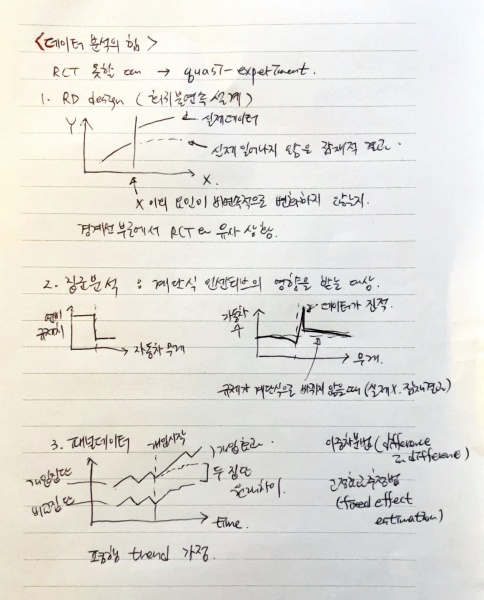 <데이터 분석의 힘>
RCT 못할 때 → quasi-experiment.
1. RD design (회귀불연속 설계)
Y
실제데이터
실제 일어나지 않을 잠재적 결과.
X.
X 이외 요인이 비연속적으로 변화하지 않는지.
경계선 부근에서 RCT와 유사 상황.
2. 집군분석 : 계단식 인센티브의 영향을 받는 대상.
연비
규제치
자동차 무게
자동차
수
데이터가 집적.
무게.
규제가 계단식으로 바뀌지 않을 때 (실제X. 잠재결과)
3. 패널데이터
개입시작
개입효과.
개입집단
비교집단
두 집단
time.
이중차분법 (difference
in difference)
고정효과추정법
(fixed effect
estimation)
평행 trend 가정.